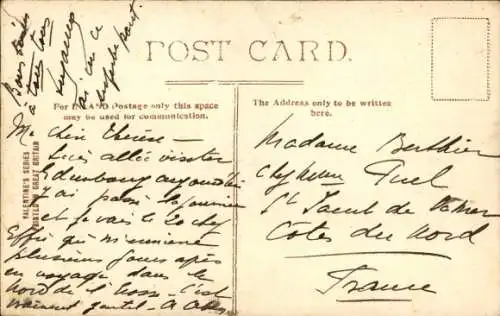 Bons baisers
à tous tous
j'ai vu ce
superbe pont
POST CARD.
For INLAND Postage only this space
may be used for communication.
The Address only to be written
here.
VALENTINE'S SERIES
PRINTED IN GREAT BRITAIN
Ma chère Thérèse —
Suis allée visiter
Edimbourg aujourd'hui
J'ai passé la journée
et je vais le 20 chez
Effie qui m'emmène
plusieurs jours après
en voyage dans le
nord de l'Ecosse. C'est
vraiment gentil — A
Madame Berthier
chez Mme
St
Côtes du Nord
France